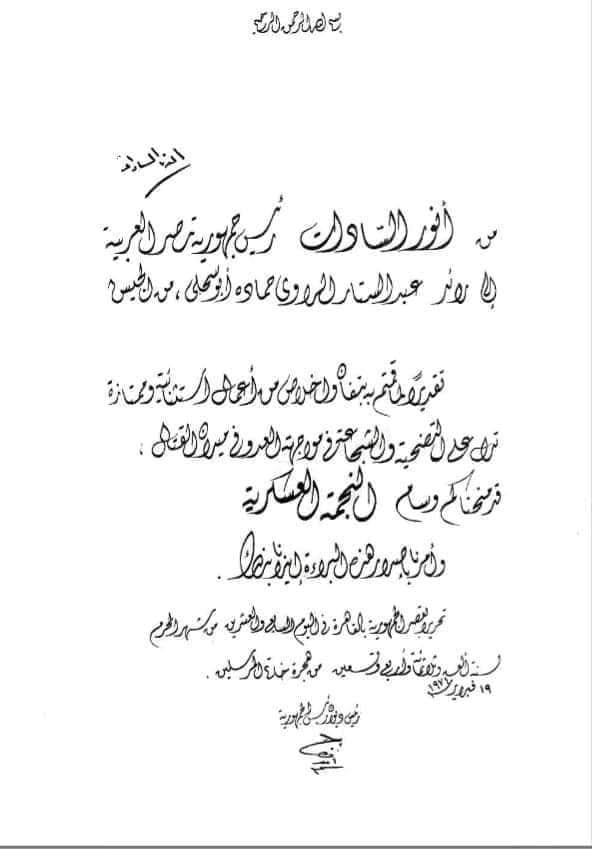 بسم الله الرحمن الرحيم
أنور السادات
من أنور السادات رئيس جمهورية مصر العربية
إلى رائد عبد الستار الراوي حماده أبو سحلى ، من الجيش
تقديرًا لما قمتم به بتفان وإخلاص من أعمال استثنائية وممتازة
تدل على التضحية والشجاعة في مواجهة العدو في ميدان القتال ،
قد منحناكم وسام النجمة العسكرية
وأمرنا بإصدار هذه البراءة إيذانا بذلك .
تحريرا بقصر الجمهورية بالقاهرة في اليوم السابع والعشرين من شهر المحرم
لسنة ألف وثلاثمائة وأربع وتسعين من هجرة خاتم المرسلين .
١٩ فبراير ١٩٧٤
رئيس ديوان رئيس الجمهورية